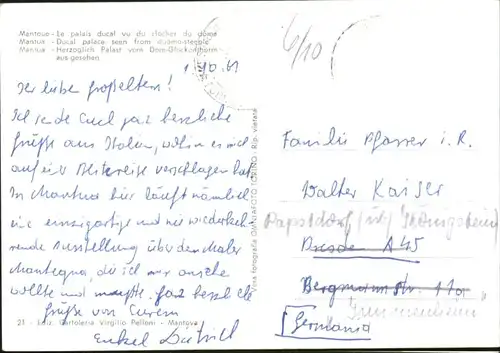 Mantoue - Le palais ducal vu du clocher du dôme
Mantua - Ducal palace seen from duomo-steeple
Mantua - Herzoglich Palast vom Dom-Glockenthurm
aus gesehen
1.10.61
6/10
Ihr lieben Großeltern!
Ich sende Euch ganz herzliche
Grüße aus Italien, wohin es mich
auf einer Blitzreise verschlagen hat.
In Mantua hier läuft nämlich
eine einzigartige und nie wiederkeh-
rende Ausstellung über den Maler
Mantegna, die ich mir ansehe
wollte und mußte. Ganz herzliche
Grüße von Eurem
Enkel Dietrich
21 - Ediz. Cartoleria Virgilio Pelloni - Mantova
Vera fotografia OMNIAFOTO TORINO - Rip. vietata
Familie Pfarrer i. R.
Walter Kaiser
Papstdorf (üb/ Königstein)
Dresden A 45
Bergmannstr. 17a
Germania